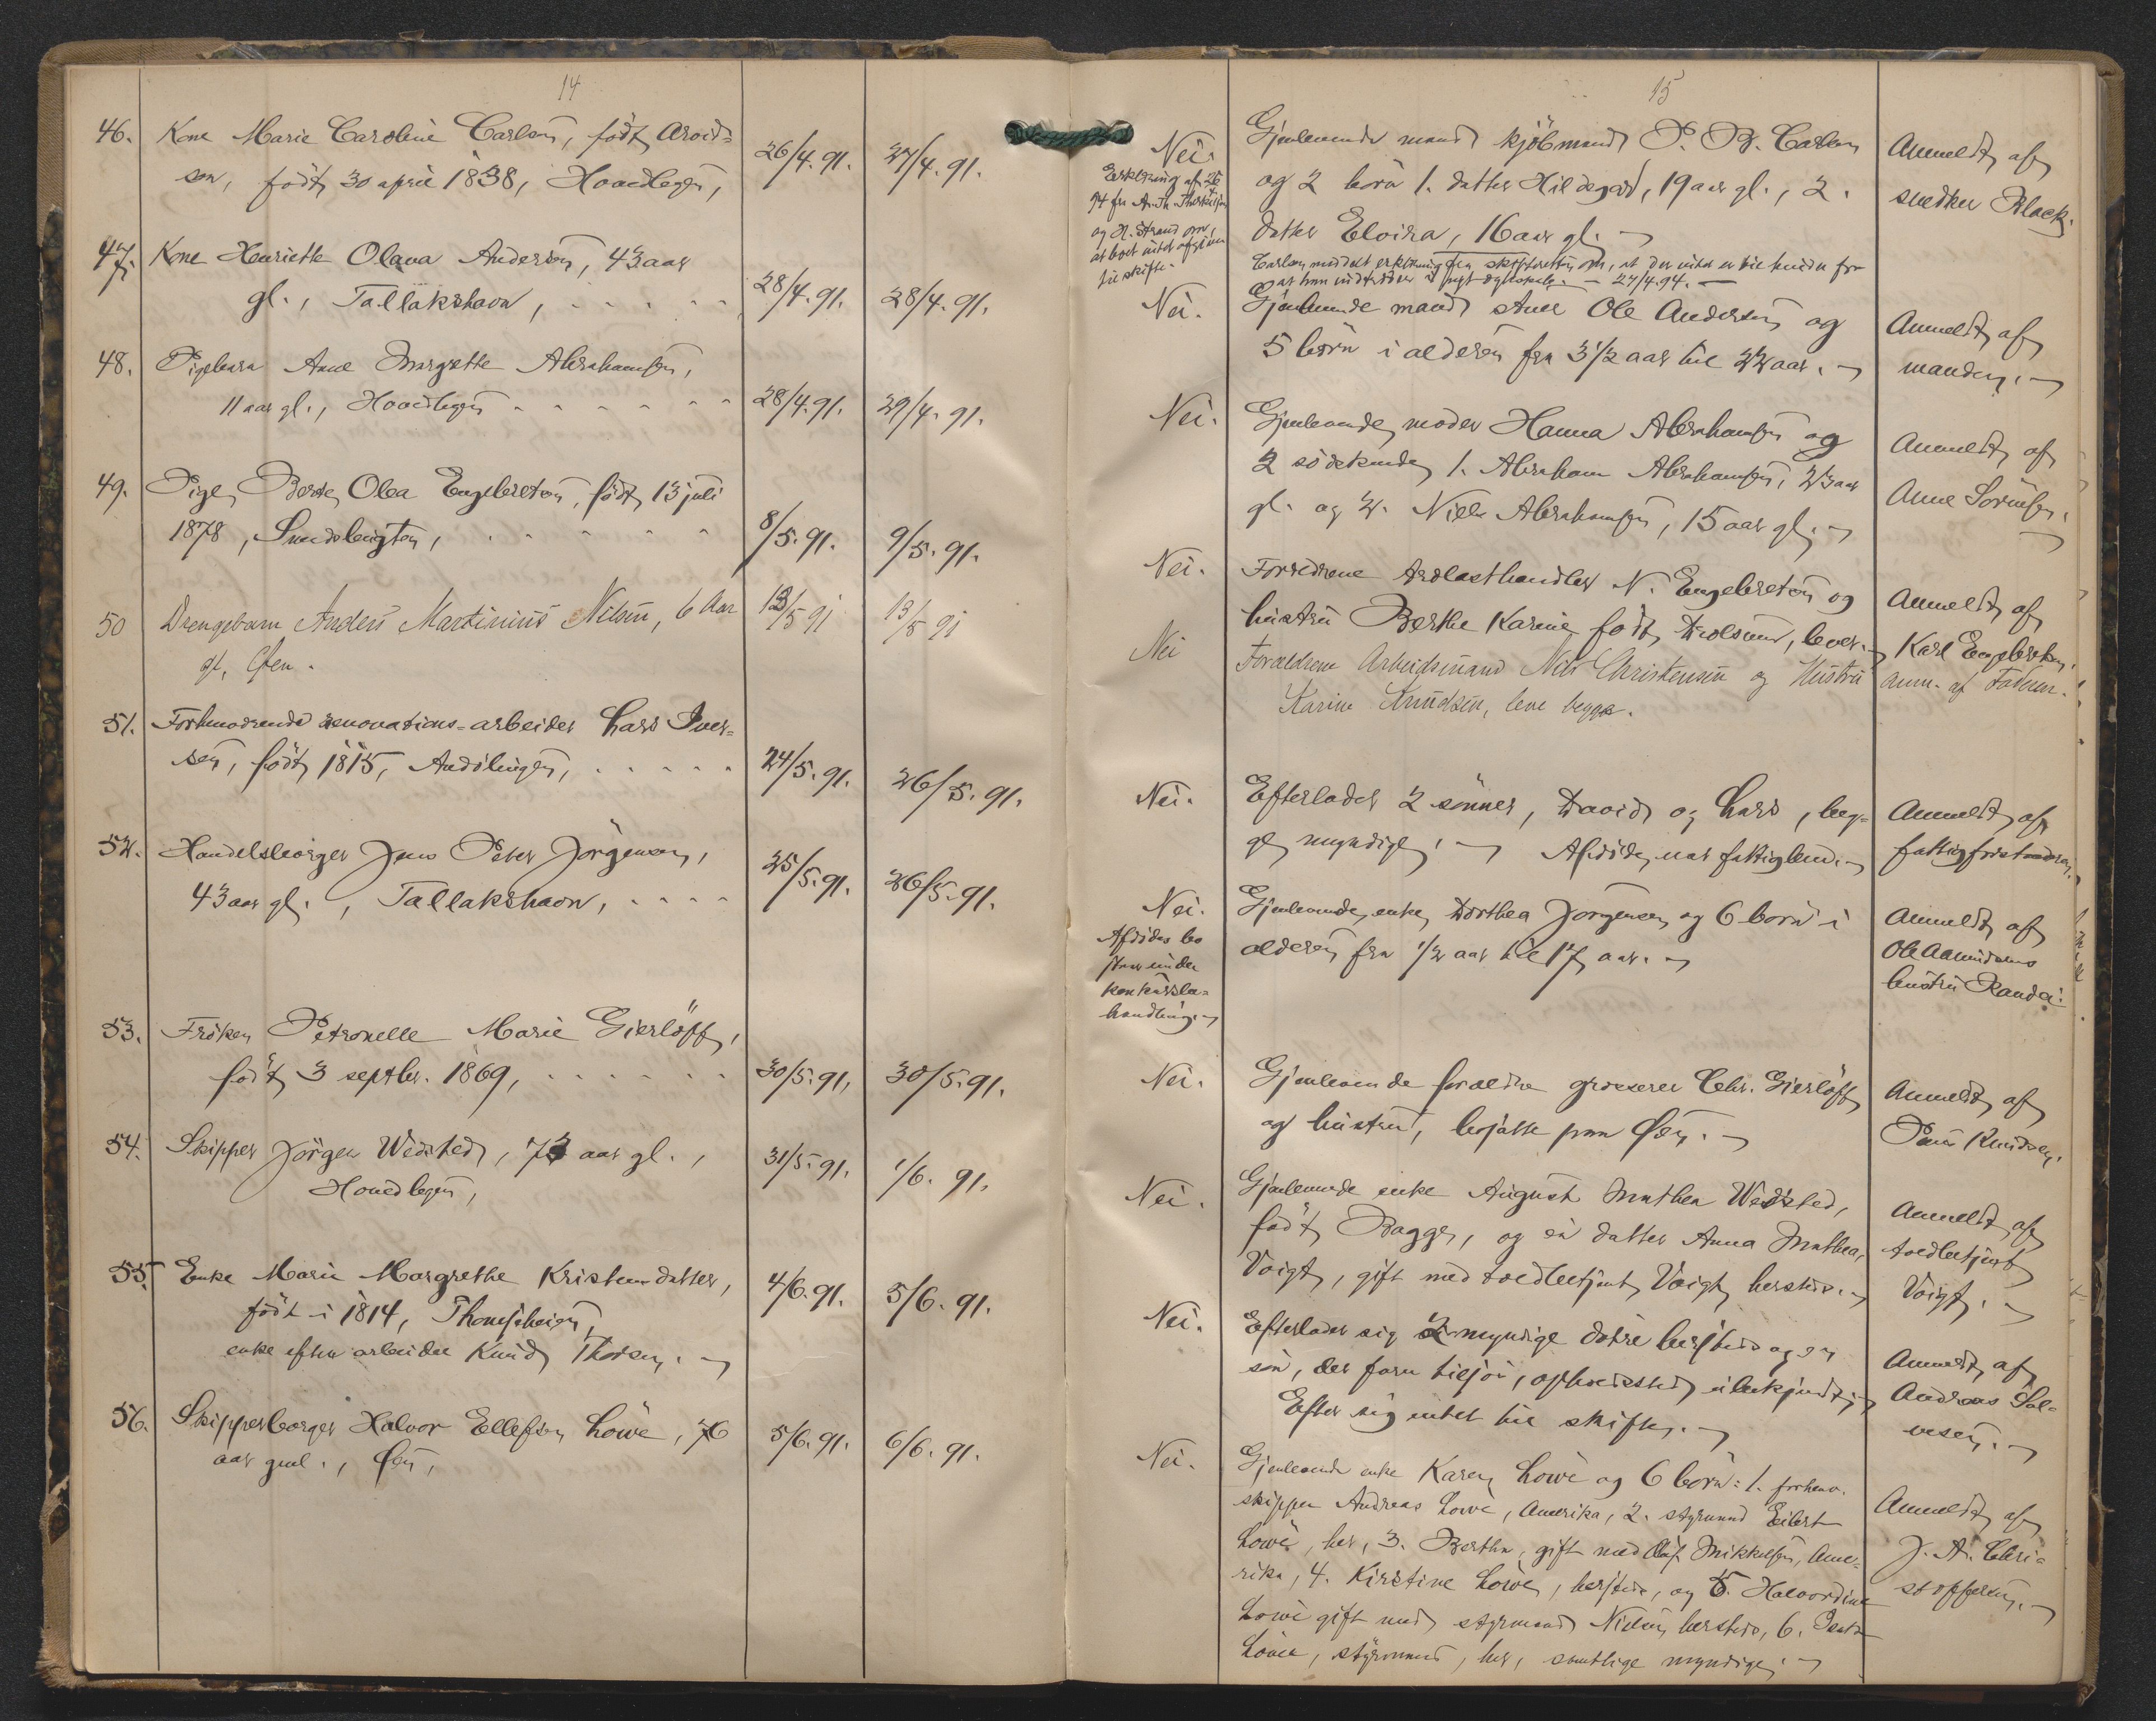 14
46. Kone Marie Caroline Carlsen, født Arvid-
sen, født 30 april 1838, Hovedlegen, 26/4.91. 27/4.91.
47. Kone Henriette Olava Andersen, 43 aar
gl., Tallakshavn, 28/4.91. 28/4.91.
48. Pigebarn Anne Margrette Abrahamsen,
11 aar gl., Hovedlegen 28/4.91. 29/4.91.
49. Pige, Berte Olea Engebretsen, født 13 juli
1878, 8/5.91. 9/5.91.
50 Drengebarn Anders Martinius Nilsen, 6 Aar
gl, Øen. 13/5 91 13/5 91
51. Forhenværende renovations-arbeider Lars Iver-
sen, født 1815, 24/5.91. 26/5.91.
52. Handelsborger Jens Peter Jörgensen,
43 aar gl., Tallakshavn, 25/5.91. 26/5.91.
53. Fröken Petronelle Marie Gierlöff,
født 3 septbr. 1869, 30/5.91, 30/5.91.
54. Skipper Jörgen Wedsted, aar gl.,
Hovedlegen, 31/5.91. 1/6.91.
55. Enke Marie Margrethe Kristensdatter,
født i 1814,
enke efter arbeider Knud Thorsen. 4/6.91. 5/6.91.
56. Skipperborger Halvor Ellefsen Löwe, 76
aar gml., Øen, 5/6.91. 6/6.91.
15
Nei. Gjenlevende mand kjöbmand P. B. Carlsen
og 2 börn 1. datter Hildegard, 19 aar gl., 2.
datter Elvira, 16 aar gl.
Erklæring af 26/4
94 fra
og H. Strand om,
at boet intet
til skifte.
Carlsen meddelt erklæring fra skifteretten om, at der intet er til hinder for
at han indtræder i nyt ægteskab. 27/4.94.
Anmeldt af
snedker Black.
Nei. Gjenlevende mand Ole Andersen og
5 börn i alderen fra 3 1/2 aar til 22 aar.
Anmeldt af
manden.
Nei. Gjenlevende moder Hanna Abrahamsen og
2 södskende 1. Abraham Abrahamsen, 23 aar
gl. og 2. Niels Abrahamsen, 15 aar gl.
Anmeldt af
Anne Sörensen.
Nei. Forældrene N. Engebretsen og
hustru Berthe Karine, født lever.
Anmeldt af
Karl Engebretsen.
Nei Forældrene Arbeidsmand Nils Christensen og Hustru
Karine Knudsen, leve begge.
Anm. af Faderen.
Nei. Efterlader 2 sönner, David og Lars, beg-
ge myndige. Afdöde var fattiglem.
Anmeldt af
fattigforstanderen.
Nei. Gjenlevende enke Dorthea Jorgensen og 6 börn i
alderen fra 1/2 aar til 17 aar.
Afdödes bo
staar under
konkursbe-
handling.
Anmeldt af
Ole Aamundsens
hustru Randa.
Nei. Gjenlevende forældre grosserer Chr. Gierlöff
og hustru, bosatte paa Øen.
Anmeldt af
Knudsen.
Nei. Gjenlevende enke August Mathea Wedsted,
født Bagge, og en datter Anna Mathea,
Voigt, gift med toldbetjent Voigt hersteds.
Anmeldt af
toldbetjent
Voigt.
Nei. Efterlader sig 2 myndige dötre hersteds og en
sön, der farer tilsjös, opholdssted ubekjendt.
Efter sig intet til skifte.
Anmeldt af
Andreas Sal-
vesen.
Nei. Gjenlevende enke Karen Löwe og 6 börn: 1. forhenv.
skipper Andreas Löwe, Amerika, 2. styrmand Eilert
Löwe, her, 3. Bertha, gift med Olaf Mikkelsen, Ame-
rika, 4. Kirstine Löwe, hersteds, og 5. Halvordine
Löwe gift med styrmand Nielsen hersteds, 6.
Löwe, styrmand, her, samtlige myndige.
Anmeldt af
J. A. Chri-
stoffersen.